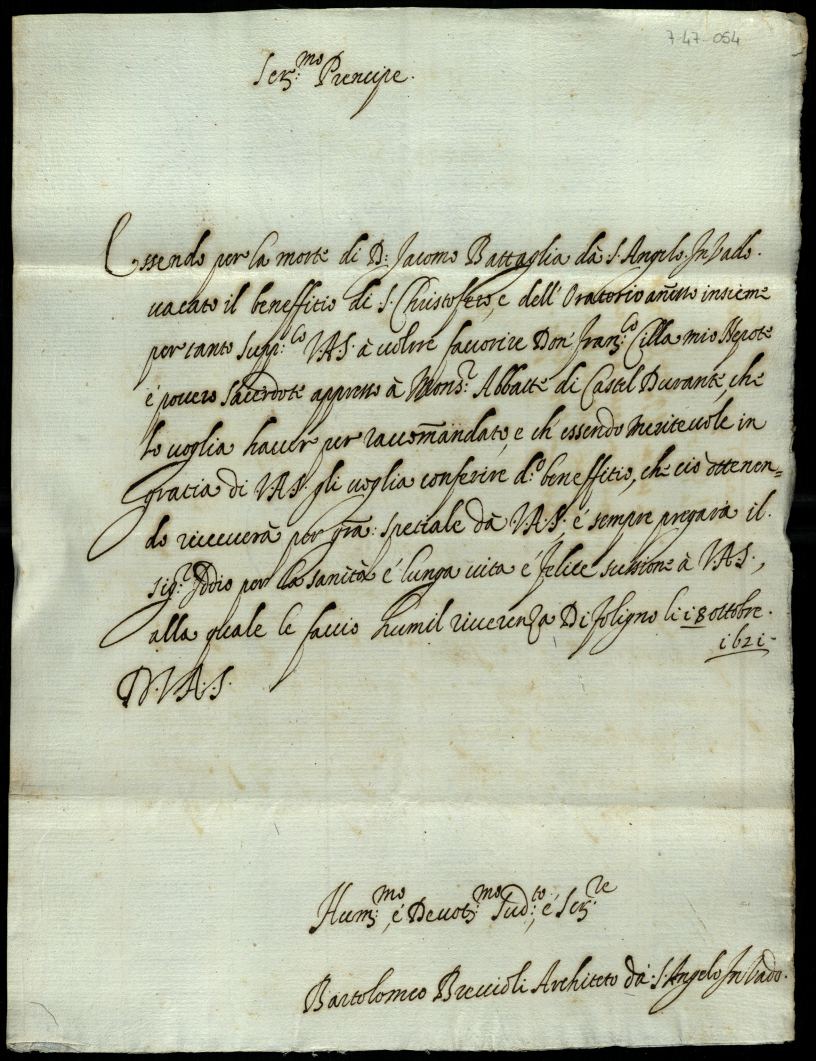 7-47-054
Ser:mo Prencipe.
Essendo per la morte di D: Jacomo Battaglia dà S. Angelo In Vado.
vacato il beneffitio di S. Christofero, e dell' Oratorio añesso insieme
per tanto Supp:co V.A.S. à volere favorire Don Fran:co Cilla mio Nepote
é povero Sacerdote appresso à Mons:r Abbatte di Castel Durante, che
lo voglia haver per raccom̃andato, e ch' essendo meritevole in
gratia di V.A.S. gli voglia conferire d:o beneffitio, che ciò ottenen=
do riceverà per gr̃a: spetiale dà V.A.S. é sempre pregarà il
Sig:r Iddio per la sanità é lunga vita é felice à V.A.S.,
alla quale le faccio humil riverenza Di Foligno li i8 ottobre.
i62i-
D.V.A.S.
Hum:mo é Devot:mo Sud:to, é Ser:re
Bartolomeo Breccioli Architeto dà S. Angelo In Vado.